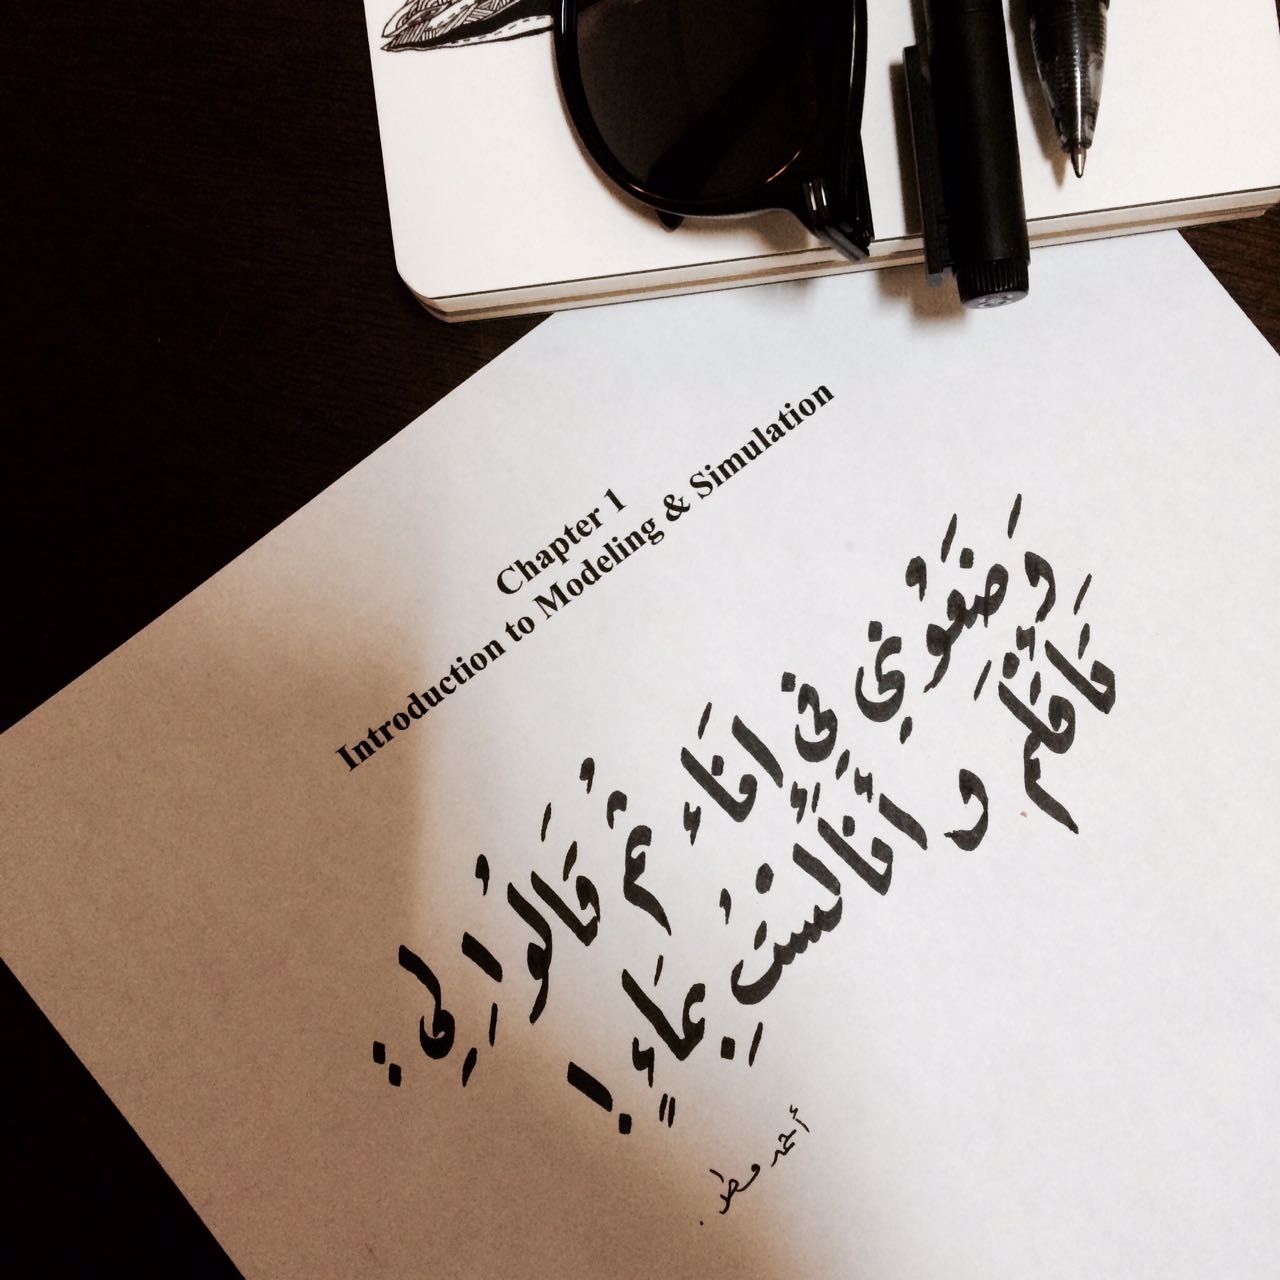 Chapter 1
Introduction to Modeling & Simulation
وَضَعُونِي فِي إنَاءٍ ثُمَّ قَالُوا لِي :
تَأَقْلَم و أنَا لَسْتُ بِمَاءٍ !
أحمد مطر .